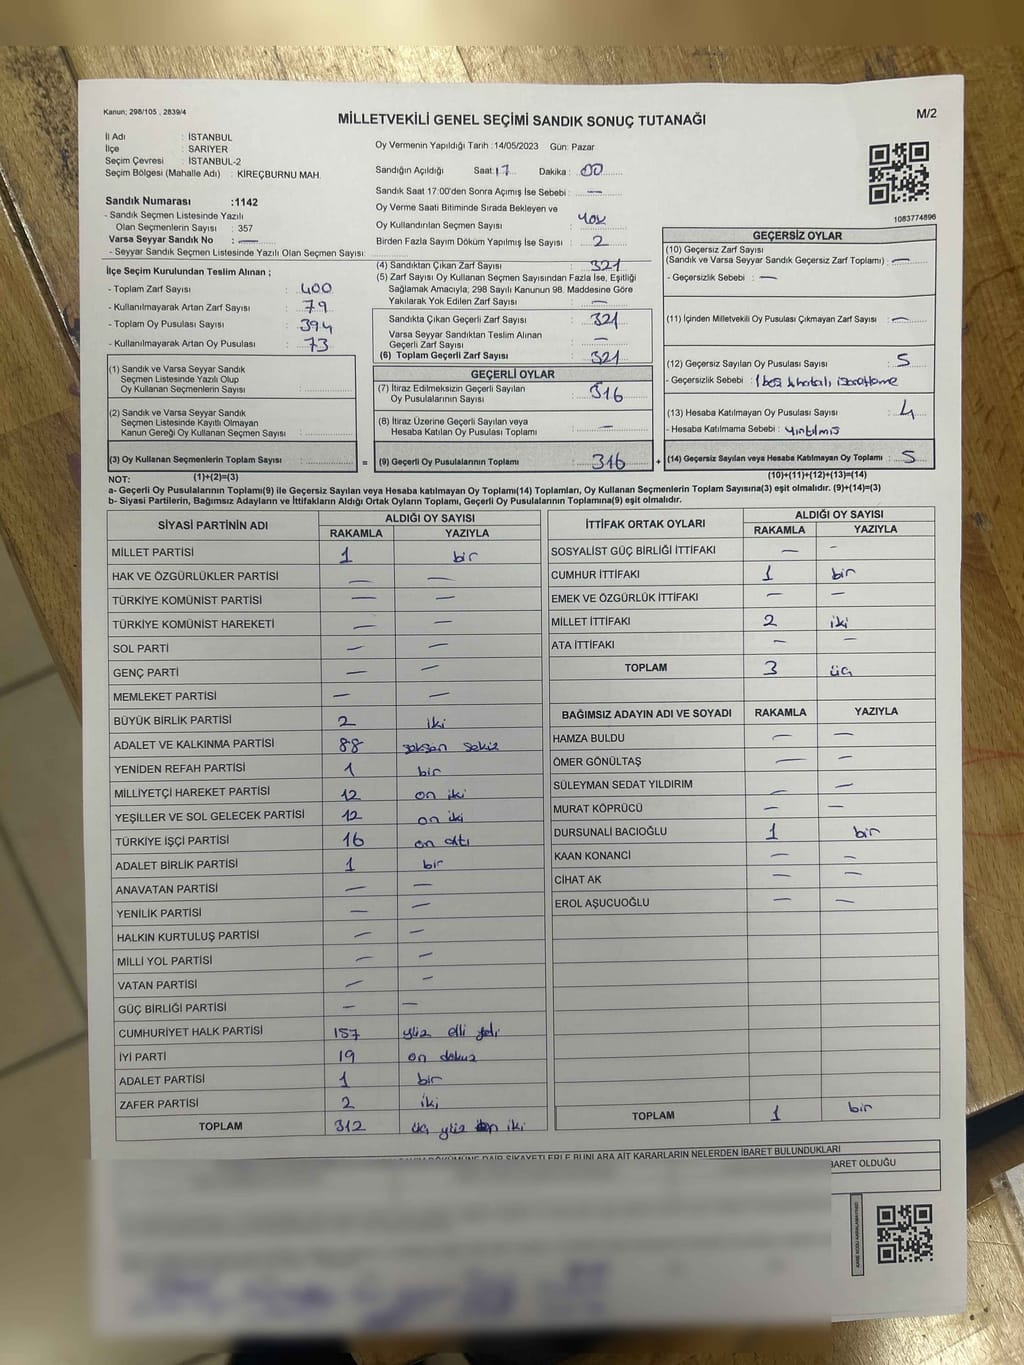 Kanun; 298/105 , 2839/4
M/2
MİLLETVEKİLİ GENEL SEÇİMİ SANDIK SONUÇ TUTANAĞI
İl Adı : İSTANBUL
İlçe : SARIYER
Seçim Çevresi : İSTANBUL-2
Seçim Bölgesi (Mahalle Adı) : KİREÇBURNU MAH.
Sandık Numarası :1142
- Sandık Seçmen Listesinde Yazılı
Olan Seçmenlerin Sayısı : 357
Varsa Seyyar Sandık No : —
- Seyyar Sandık Seçmen Listesinde Yazılı Olan Seçmen Sayısı:
İlçe Seçim Kurulundan Teslim Alınan ;
- Toplam Zarf Sayısı : 400
- Kullanılmayarak Artan Zarf Sayısı : 79
- Toplam Oy Pusulası Sayısı : 394
- Kullanılmayarak Artan Oy Pusulası : 73
(1) Sandık ve Varsa Seyyar Sandık
Seçmen Listesinde Yazılı Olup
Oy Kullanan Seçmenlerin Sayısı :
(2) Sandık ve Varsa Seyyar Sandık
Seçmen Listesinde Kayıtlı Olmayan
Kanun Gereği Oy Kullanan Seçmen Sayısı :
(3) Oy Kullanan Seçmenlerin Toplam Sayısı :
Oy Vermenin Yapıldığı Tarih :14/05/2023 Gün: Pazar
Sandığın Açıldığı Saat:17 Dakika : 00
Sandık Saat 17:00'den Sonra Açımış İse Sebebi : —
Oy Verme Saati Bitiminde Sırada Bekleyen ve
Oy Kullandırılan Seçmen Sayısı : yok
Birden Fazla Sayım Döküm Yapılmış İse Sayısı : 2
(4) Sandıktan Çıkan Zarf Sayısı : 321
(5) Zarf Sayısı Oy Kullanan Seçmen Sayısından Fazla İse, Eşitliği
Sağlamak Amacıyla, 298 Sayılı Kanunun 98. Maddesine Göre
Yakılarak Yok Edilen Zarf Sayısı : —
Sandıkta Çıkan Geçerli Zarf Sayısı : 321
Varsa Seyyar Sandıktan Teslim Alınan
Geçerli Zarf Sayısı : —
(6) Toplam Geçerli Zarf Sayısı : 321
GEÇERLİ OYLAR
(7) İtiraz Edilmeksizin Geçerli Sayılan
Oy Pusulalarının Sayısı : 316
(8) İtiraz Üzerine Geçerli Sayılan veya
Hesaba Katılan Oy Pusulası Toplamı : —
= (9) Geçerli Oy Pusulalarının Toplamı : 316 +
1083774896
GEÇERSİZ OYLAR
(10) Geçersiz Zarf Sayısı
(Sandık ve Varsa Seyyar Sandık Geçersiz Zarf Toplamı) : —
- Geçersizlik Sebebi : —
(11) İçinden Milletvekili Oy Pusulası Çıkmayan Zarf Sayısı : —
(12) Geçersiz Sayılan Oy Pusulası Sayısı : 5
- Geçersizlik Sebebi : 1 boş 4 hatalı işaretleme
(13) Hesaba Katılmayan Oy Pusulası Sayısı : 4
- Hesaba Katılmama Sebebi : yırtılmış
(14) Geçersiz Sayılan veya Hesaba Katılmayan Oy Toplamı : 5
NOT: (1)+(2)=(3) (10)+(11)+(12)+(13)=(14)
a- Geçerli Oy Pusulalarının Toplamı(9) ile Geçersiz Sayılan veya Hesaba katılmayan Oy Toplamı(14) Toplamları, Oy Kullanan Seçmenlerin Toplam Sayısına(3) eşit olmalıdır. (9)+(14)=(3)
b- Siyasi Partilerin, Bağımsız Adayların ve İttifakların Aldığı Ortak Oyların Toplamı, Geçerli Oy Pusulalarının Toplamına(9) eşit olmalıdır.
SİYASİ PARTİNİN ADI ALDIĞI OY SAYISI
RAKAMLA YAZIYLA
MİLLET PARTİSİ 1 bir
HAK VE ÖZGÜRLÜKLER PARTİSİ — —
TÜRKİYE KOMÜNİST PARTİSİ — —
TÜRKİYE KOMÜNİST HAREKETİ — —
SOL PARTİ — —
GENÇ PARTİ — —
MEMLEKET PARTİSİ — —
BÜYÜK BİRLİK PARTİSİ 2 iki
ADALET VE KALKINMA PARTİSİ 88 seksen sekiz
YENİDEN REFAH PARTİSİ 1 bir
MİLLİYETÇİ HAREKET PARTİSİ 12 on iki
YEŞİLLER VE SOL GELECEK PARTİSİ 12 on iki
TÜRKİYE İŞÇİ PARTİSİ 16 on altı
ADALET BİRLİK PARTİSİ 1 bir
ANAVATAN PARTİSİ — —
YENİLİK PARTİSİ — —
HALKIN KURTULUŞ PARTİSİ — —
MİLLİ YOL PARTİSİ — —
VATAN PARTİSİ — —
GÜÇ BİRLİĞİ PARTİSİ — —
CUMHURİYET HALK PARTİSİ 157 yüz elli yedi
İYİ PARTİ 19 on dokuz
ADALET PARTİSİ 1 bir
ZAFER PARTİSİ 2 iki
TOPLAM 312 üç yüz on iki
İTTİFAK ORTAK OYLARI ALDIĞI OY SAYISI
RAKAMLA YAZIYLA
SOSYALİST GÜÇ BİRLİĞİ İTTİFAKI — -
CUMHUR İTTİFAKI 1 bir
EMEK VE ÖZGÜRLÜK İTTİFAKI — —
MİLLET İTTİFAKI 2 iki
ATA İTTİFAKI — —
TOPLAM 3 üç
BAĞIMSIZ ADAYIN ADI VE SOYADI RAKAMLA YAZIYLA
HAMZA BULDU — —
ÖMER GÖNÜLTAŞ — —
SÜLEYMAN SEDAT YILDIRIM — —
MURAT KÖPRÜCÜ — —
DURSUNALİ BACIOĞLU 1 bir
KAAN KONANCİ — —
CİHAT AK — —
EROL AŞUCUOĞLU — —
TOPLAM 1 bir
DAİR ŞİKAYETLERLE BUNLARA AİT KARARLARIN NELERDEN İBARET BULUNDUKLARI
OLDUĞU